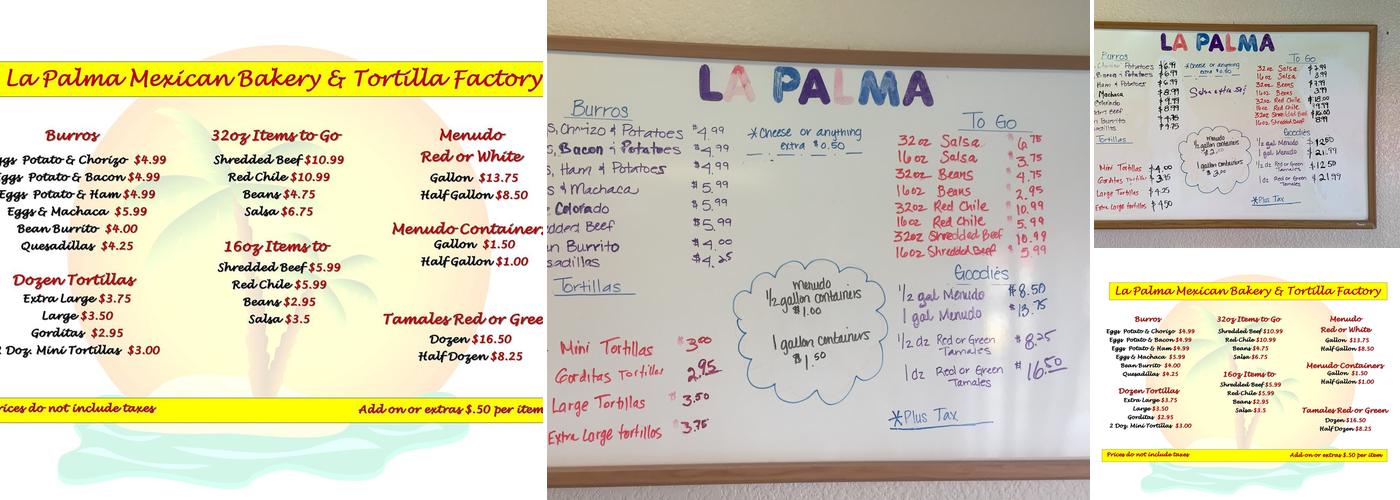 La Palma Mexican Bakery & Tortilla Factory
Burros
Eggs Potato & Chorizo $4.99
Eggs Potato & Bacon $4.99
Eggs Potato & Ham $4.99
Eggs & Machaca $5.99
Bean Burrito $4.00
Quesadillas $4.25
Dozen Tortillas
Extra Large $3.75
Large $3.50
Gorditas $2.95
2 Doz. Mini Tortillas $3.00
32oz Items to Go
Shredded Beef $10.99
Red Chile $10.99
Beans $4.75
Salsa $6.75
16oz Items to
Shredded Beef $5.99
Red Chile $5.99
Beans $2.95
Salsa $3.5
Menudo
Red or White
Gallon $13.75
Half Gallon $8.50
Menudo Containers
Gallon $1.50
Half Gallon $1.00
Tamales Red or Gree
Dozen $16.50
Half Dozen $8.25
rices do not include taxes
Add on or extras $.50 per item
LA PALMA
Burros
s, Chorizo & Potatoes $4.99
s, Bacon & Potatoes $4.99
s, Ham & Potatoes $4.99
s & Machaca $5.99
Colorado $5.99
dded Beef $5.99
n Burrito $4.00
sadillas $4.25
Tortillas
Mini Tortillas $3.00
Gorditas Tortillas 2.95
Large Tortillas $3.50
Extra Large tortillas $3.75
*Cheese or anything
extra $0.50
menudo
1/2 gallon containers
$1.00
1 gallon containers
$1.50
To Go
32oz Salsa 6.75
16oz Salsa 3.75
32oz Beans 4.75
16oz Beans 2.95
32oz Red Chile 10.99
16oz Red Chile 5.99
32oz Shredded Beef 10.99
16oz Shredded Beef 5.99
Goodies
1/2 gal Menudo $8.50
1 gal Menudo $13.75
1/2 dz Red or Green Tamales $8.25
1 dz Red or Green Tamales $16.50
*Plus Tax
LA PALMA
Burros
Chorizo & Potatoes $6.99
Bacon & Potatoes $6.99
Ham & Potatoes $6.99
Machaca $8.99
Colorado $9.99
Beef $8.99
Burrito $4.75
Tortillas
Mini Tortillas $4.00
Gorditas Tortillas
Large Tortillas $4.25
Extra Large tortillas $4.50
*Cheese or anything
extra $0.50
menudo
1/2 gallon containers
1 gallon containers
To Go
32oz Salsa
16oz Salsa 3.99
32oz Beans $7.99
16oz Beans 3.99
32oz Red Chile $18.00
16oz Red Chile $9.99
32oz Shredded Beef
16oz Shredded Beef
Goodies
1/2 gal Menudo $12.50
1 gal Menudo $21.99
1/2 dz Red or Green Tamales $12.50
1 dz Red or Green Tamales $21.99
*Plus Tax
La Palma Mexican Bakery & Tortilla Factory
Burros
Eggs Potato & Chorizo $4.99
Eggs Potato & Bacon $4.99
Eggs Potato & Ham $4.99
Eggs & Machaca $5.99
Bean Burrito $4.00
Quesadillas $4.25
Dozen Tortillas
Extra Large $3.75
Large $3.50
Gorditas $2.95
2 Doz. Mini Tortillas $3.00
32oz Items to Go
Shredded Beef $10.99
Red Chile $10.99
Beans $4.75
Salsa $6.75
16oz Items to
Shredded Beef $5.99
Red Chile $5.99
Beans $2.95
Salsa $3.5
Menudo
Red or White
Gallon $13.75
Half Gallon $8.50
Menudo Containers
Gallon $1.50
Half Gallon $1.00
Tamales Red or Green
Dozen $16.50
Half Dozen $8.25
Prices do not include taxes
Add on or extras $.50 per item